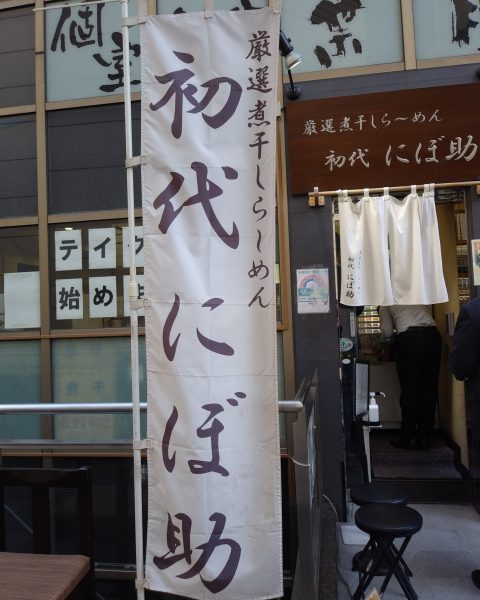 個室
厳選煮干しら〜めん
初代にぼ助
厳選煮干しら〜めん
初代 にぼ助
テイク
始め
初代 にぼ助